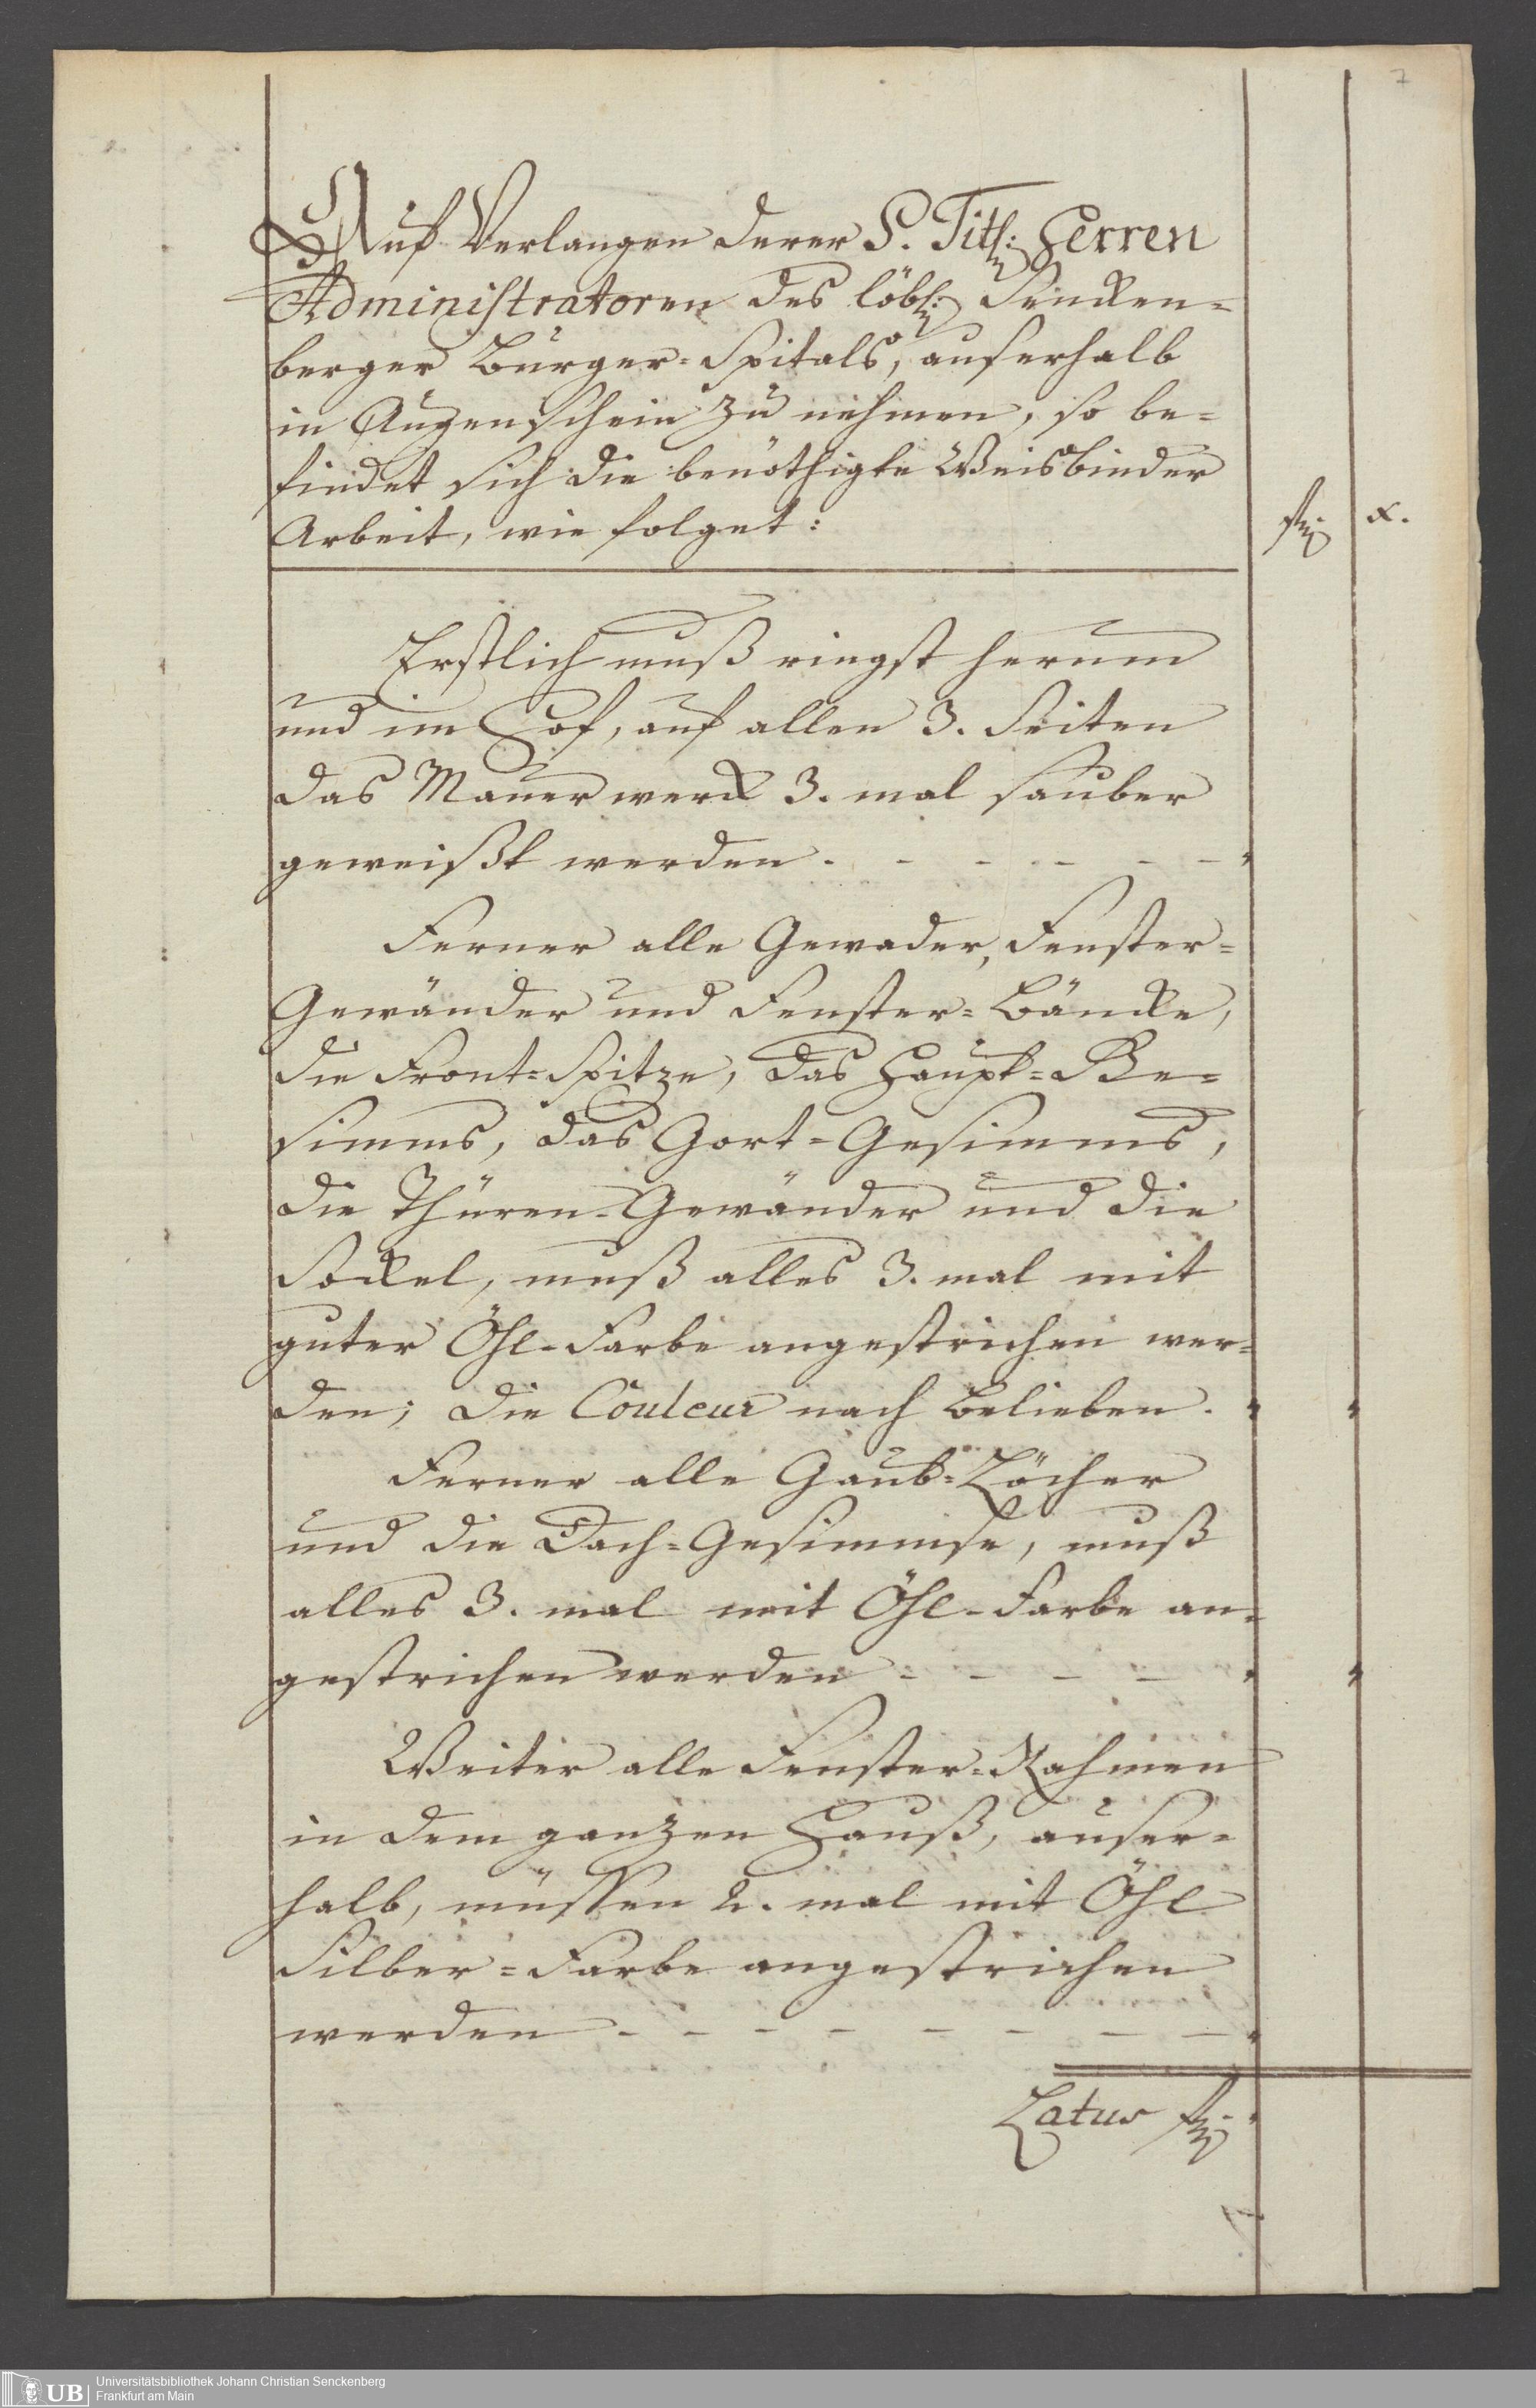 7
Auf Verlangen derer S. Titl: Herren
Administratoren des löbl: Sencken=
berger Burger=Spitals, auserhalb
in Augenschein zu nehmen, so be=
findet sich die benöthigte Weisbinder
Arbeit, wie folget:
fl: x.
Erstlich muß ringst herum
und im Hof, auf allen 3. Seiten
das Mauerwerck 3. mal sauber
geweißt werden. - - - - -
Ferner alle Gewader, Fenster=
Gewänder und Fenster=Bäncke,
die Front=Spitze, das Haupt=Ge=
simms, das Gort=Gesimms,
die Thüren-Gewänder und die
Sockel, muß alles 3. mal mit
guter Öhl-Farbe angestrichen wer=
den; die Couleur nach belieben.
Ferner alle Gaub=Löcher
und die Dach=Gesimmse, muß
alles 3. mal mit Öhl-Farbe an=
gestrichen werden - - - -
Weiter alle Fenster=Rahmen
in dem ganzen Hauß, auser=
halb, müssen 2. mal mit Öhl
Silber=Farbe angestrichen
werden - - - - - - - -
Latus fl:
UB Universitätsbibliothek Johann Christian Senckenberg
Frankfurt am Main